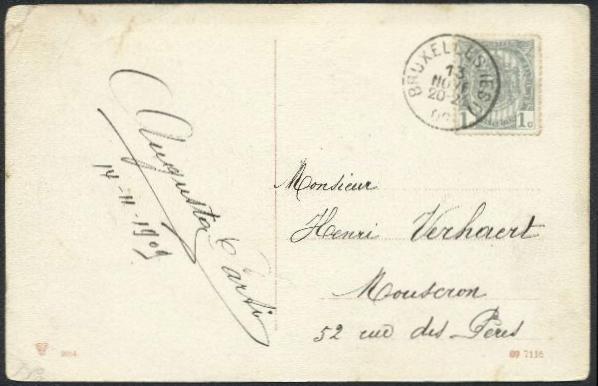 BRUXELLES
13
NOVE
20-2
1c
Augusta Carti
14-11-1909
Monsieur
Henri Verhaert
Mouscron
52 rue des Pères
09 7116